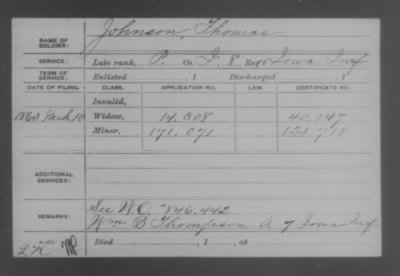 NAME OF SOLDIER: Johnson, Thomas
SERVICE: Late rank, P. Co. I, 8 Reg't Iowa Inf
TERM OF SERVICE: Enlisted , 1 Discharged , 1
DATE OF FILING. CLASS. APPLICATION NO. LAW. CERTIFICATE NO.
Invalid,
1863 Mch 10 Widow, 14.808 40.147
Minor, 171.071
ADDITIONAL SERVICES:
REMARKS: See W.C. 846.442
Wm B Thompson A 7 Iowa Inf
Died , 1 , at